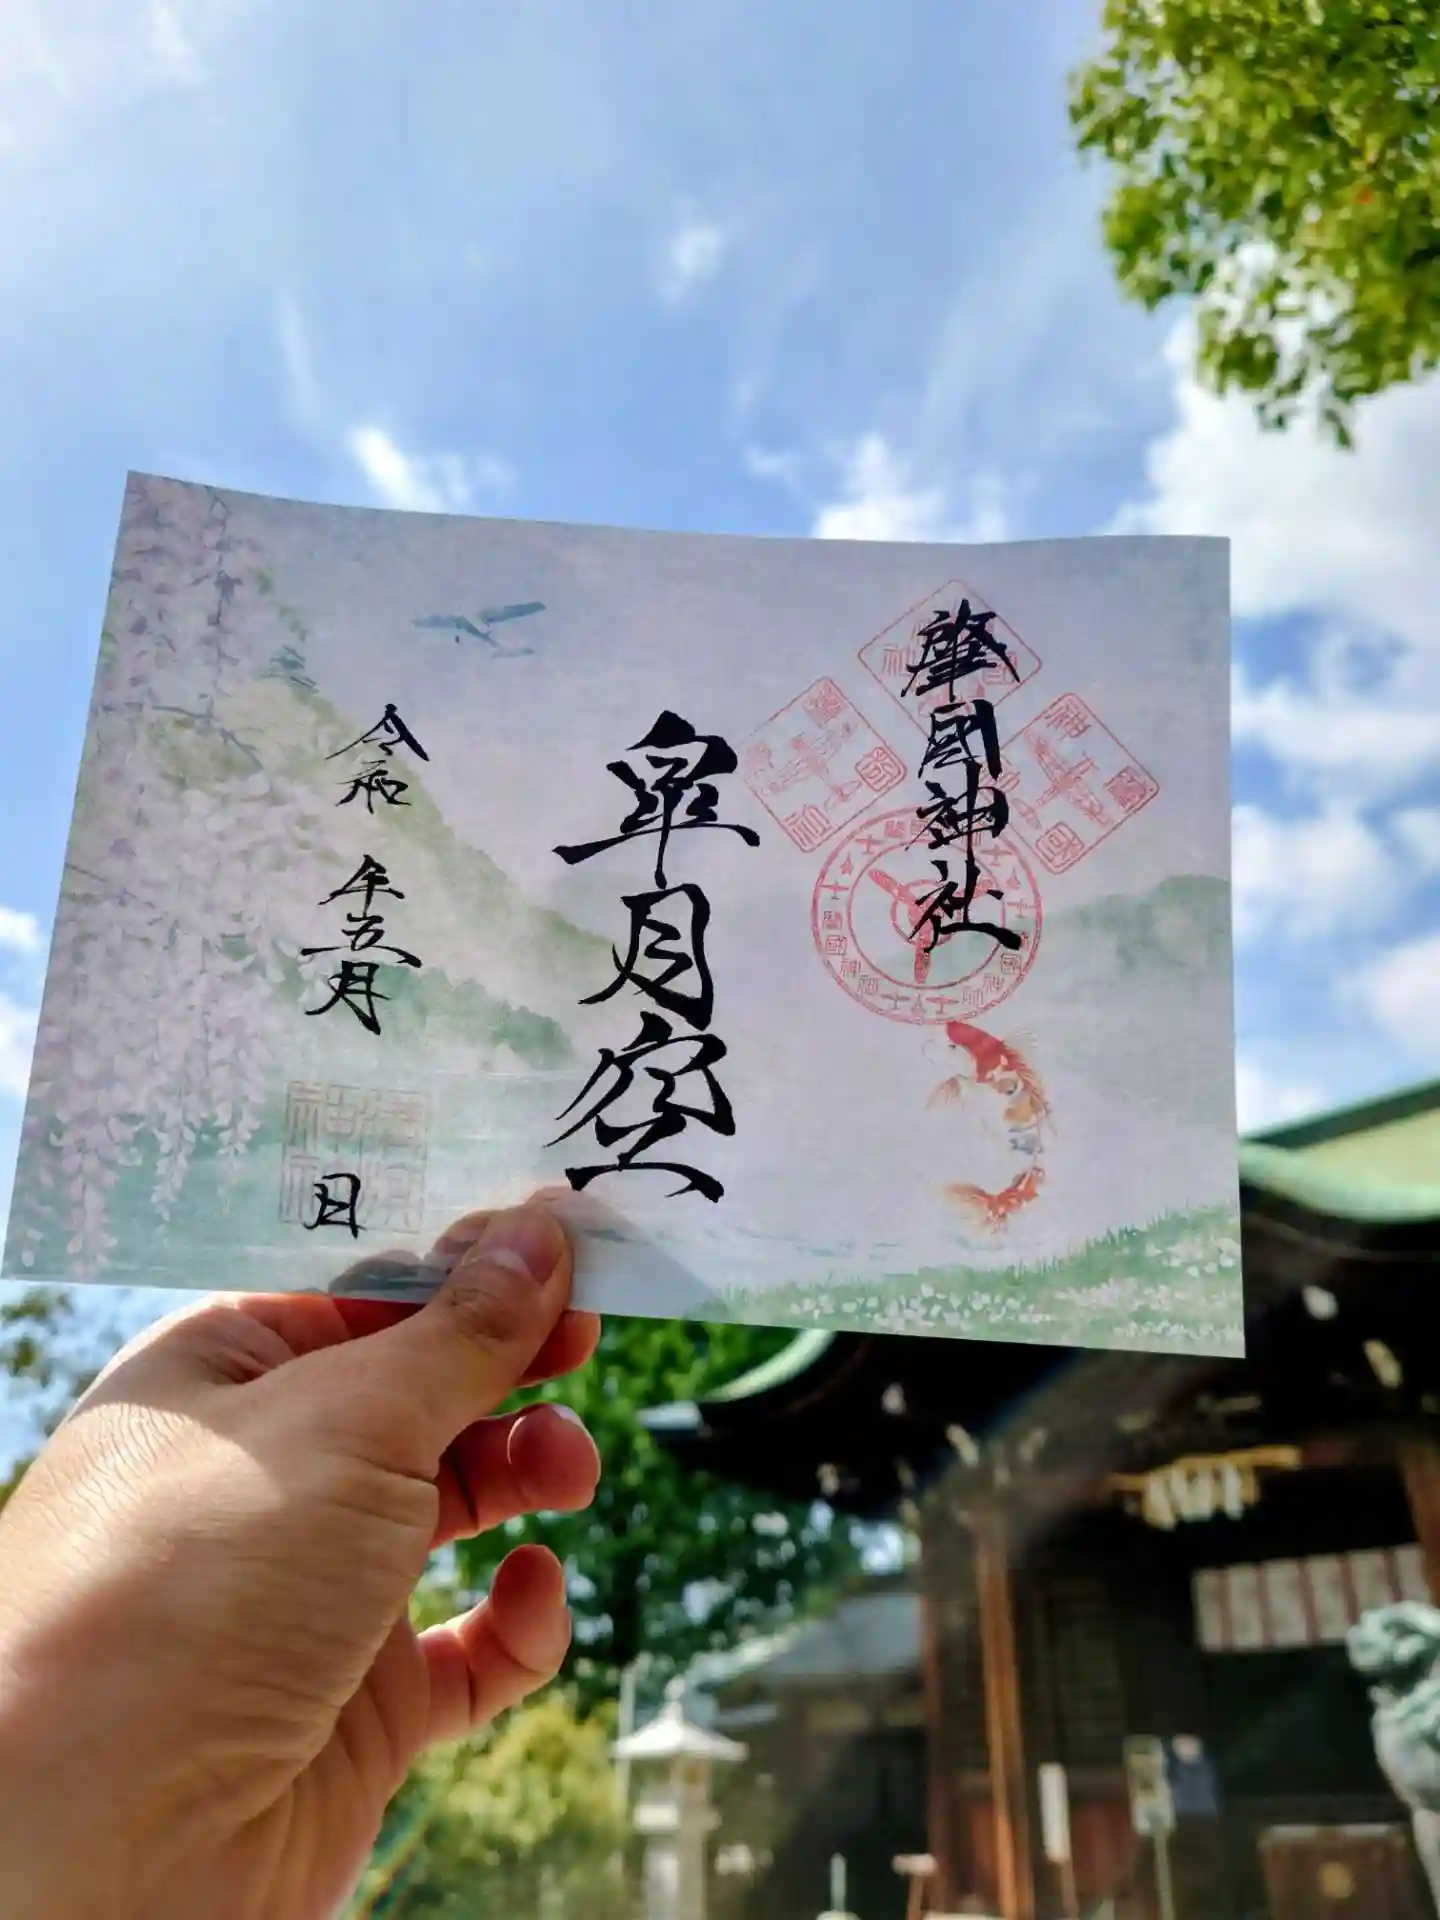 肇國神社
皐月空
令和 年五月 日